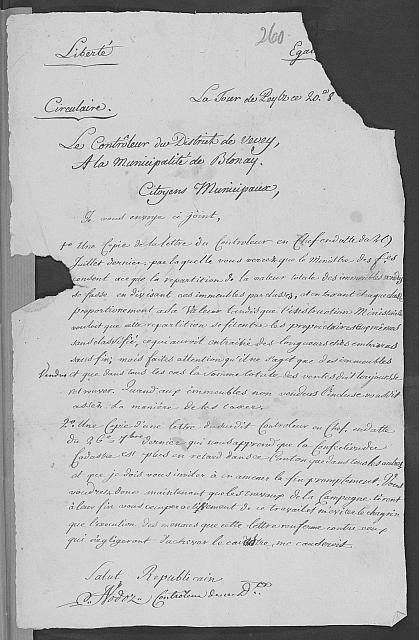 260
Liberté Egal
Circulaire. La Tour de Peylz ce 20.e 8
Le Contrôleur du District de Vevey,
A la Municipalité de Blonay.
Citoyens Municipaux,
Je vous envoye ci joint,
1o Une Copie de la lettre du Controleur en Chef en datte du 29
Juillet dernier, par laquelle vous verrez que le Ministre des f.ces
consent que la repartition de la valeur totale des immeubles
se fasse en divisant ces immeubles par classes, et en taxant chaque classe
proportionement a la Valeur tandis que l'instruction Ministerielle
vouloit que cette repartition se fit entre les proprietaires
sans classifié, ce qui auroit entrainé des longueurs & des embarras
sans fin; mais faites attention qu'il ne s'agit que des immeubles
Vendus et que dans tous les cas la somme totale des ventes doit toujours se
retrouver. Quand aux immeubles non vendus l'incluse vous dit
assez la maniere de les taxer.
2o. Une Copie d'une lettre du susdit Controleur en Chef, en datte
du 26e 7bre dernier qui vous apprend que la Confection du
Cadastre est plus en retard dans ce Canton que dans tous les autres
et que je dois vous inviter à en amener la fin promptement. Vous
voudrez donc maintenant que les travaux de la Campagne tirent
à leur fin vous occuper de ce travail et m'eviter le chagrin
que l'execution des menaces que cette lettre renferme contre ceux
qui négligeront d'achever le cadastre, me causeroit.
Salut Republicain
Nodoz, Controleur